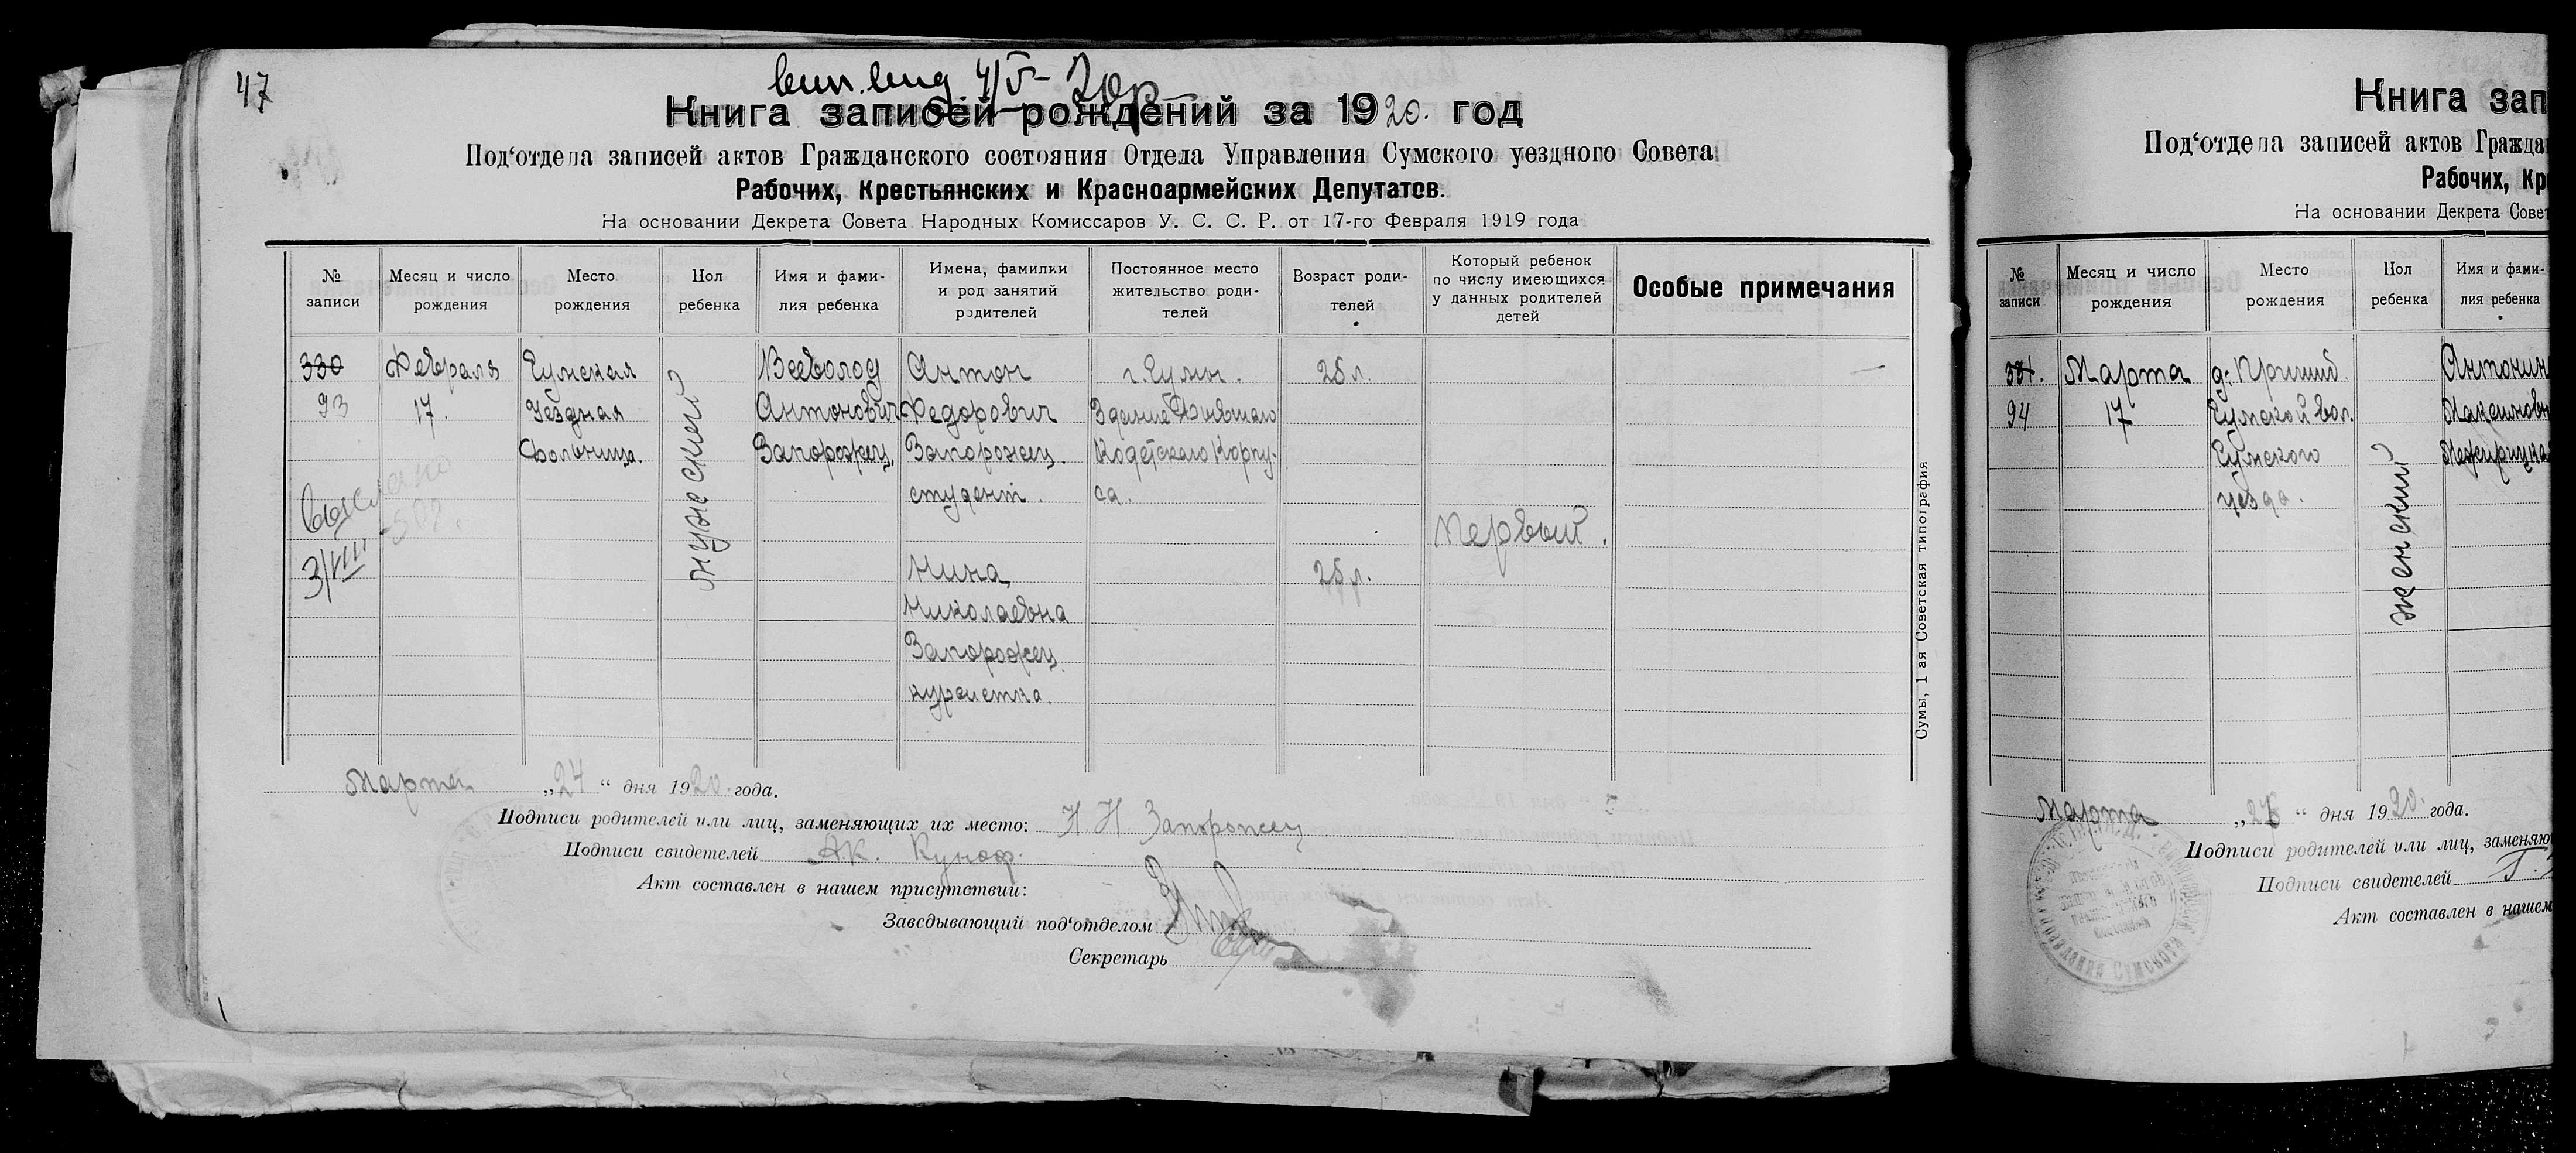 47
Книга записей рождений за 1920. год
Под‘отдела записей актов Гражданского состояния Отдела Управления Сумского уездного Совета
Рабочих, Крестьянских и Красноармейских Депутатов.
На основании Декрета Совета Народных Комиссаров У. С. С. Р. от 17-го Февраля 1919 года
№ записи
Месяц и число рождения
Место рождения
Пол ребенка
Имя и фами-
лия ребенка
Имена, фамилки
и род занятий
родителей
Постоянное место
жительство роди-
телей
Возраст роди-
телей
Который ребенок
по числу имеющихся
у данных родителей
детей
Особые примечания
330
93
Февраля
17.
Сумская
Уездная
Больница.
мужеский
Всеволод
Антонович
Запорожец.
Антон
Федорович
Запорожец
студент.
Нина
Николаевна
Запорожец
курсистка.
г. Сумы.
Здание бывшаго
Кадетскаго Корпу-
са.
25 л.
25 л.
Первый.
выслано
3/VIII
Сумы, 1 ая Советская типография
Марта „24“ дня 1920. года.
Подписи родителей или лиц, заменяющих их место: Н Н. Запорожец
Подписи свидетелей
Акт составлен в нашем присутствии:
Заведывающий под‘отделом
Секретарь
Книга зап
Под‘отдела записей актов Гражда
Рабочих, Кр
На основании Декрета Совет
№ записи
Месяц и число рождения
Место рождения
Пол ребенка
Имя и фами-
лия ребенка
331.
94
Марта
17
д. Пришиб.
Сумской вол.
Сумского
уезда.
женский
Антонин
Максимовн
Межирицкая
Марта дня 1920. года.
Подписи родителей или лиц, заменяю
Подписи свидетелей
Акт составлен в нашем